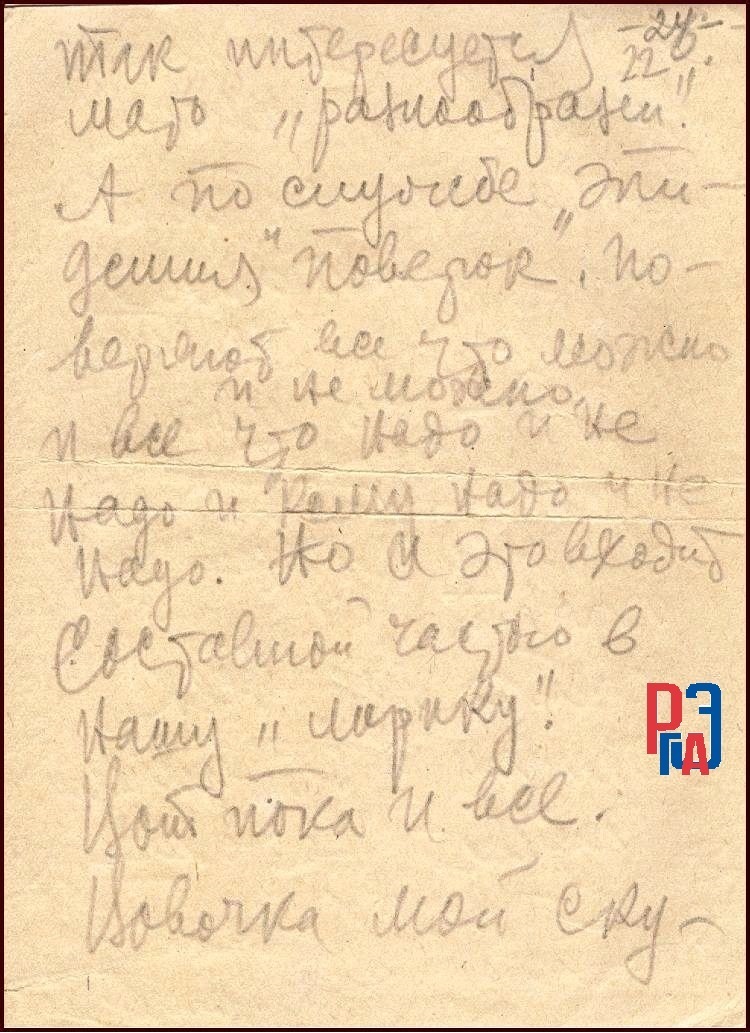 так интересуется -24-
22.
мать „разнообразен".
А по службе „эпи-
демия" поверок". По-
веряют все что можно
и не можно,
и все что надо и не
надо и кому надо и не
надо. Но и это входит
составной частью в
нашу „лирику".
Вот пока и все.
Вовочка мой ску-
РГАЭ